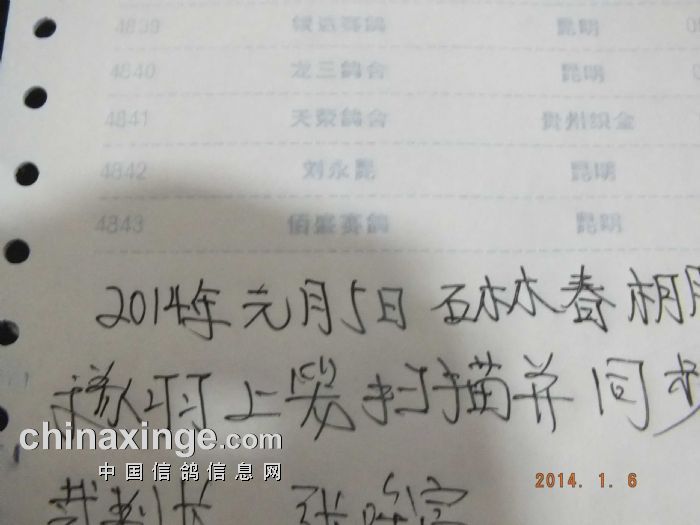 4839 赛鸽 昆明
4840 龙三鸽舍 昆明
4841 天荣鸽舍 贵州织金
4842 刘永昆 昆明
4843 佰盛赛鸽 昆明
2014年元月5日 石林春棚
该羽上笼扫描并同步
chinaxinge.com
中国信鸽信息网
2014. 1. 6
裁判长